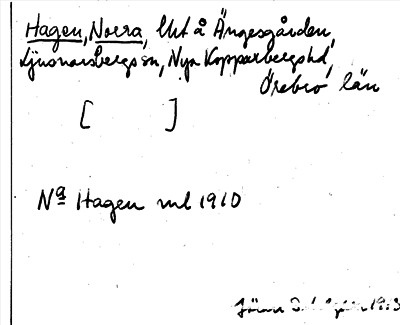 Hagen, Norra, Utt å Ängesgården,
Ljusnarsbergs sn, Nya Kopparbergs hd,
Örebro län
[ ]
Nª Hagen ml 1910
Jöran